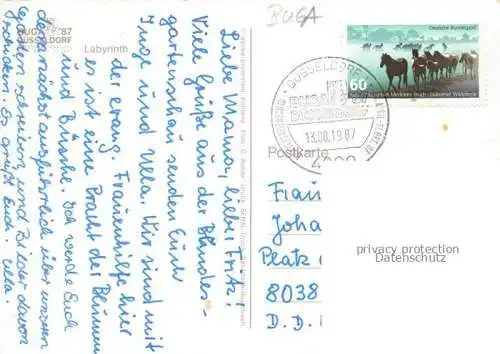 BUGA '87
DÜSSELDORF
Labyrinth
Liebe Mama, lieber Fritz!
Viele Grüße aus der Bundes-
gartenschau senden Euch
Inge und Ulla. Wir sind mit
der evang. Frauenhilfe hier
es ist eine Pracht der Blumen
und Büsche. Ich werde Euch
demnächst ausführlich über unseren
Garten schreiben, und Bilder davon
schicken. Es grüßt Euch. Ulla.
BUGA
Deutsche Bundespost
60
DÜSSELDORF
BUGA '87
DÜSSELDORF
13.08.1987
4000
Postkarte
Frau
Joha
Platz
8038
D. D.
privacy protection
Datenschutz